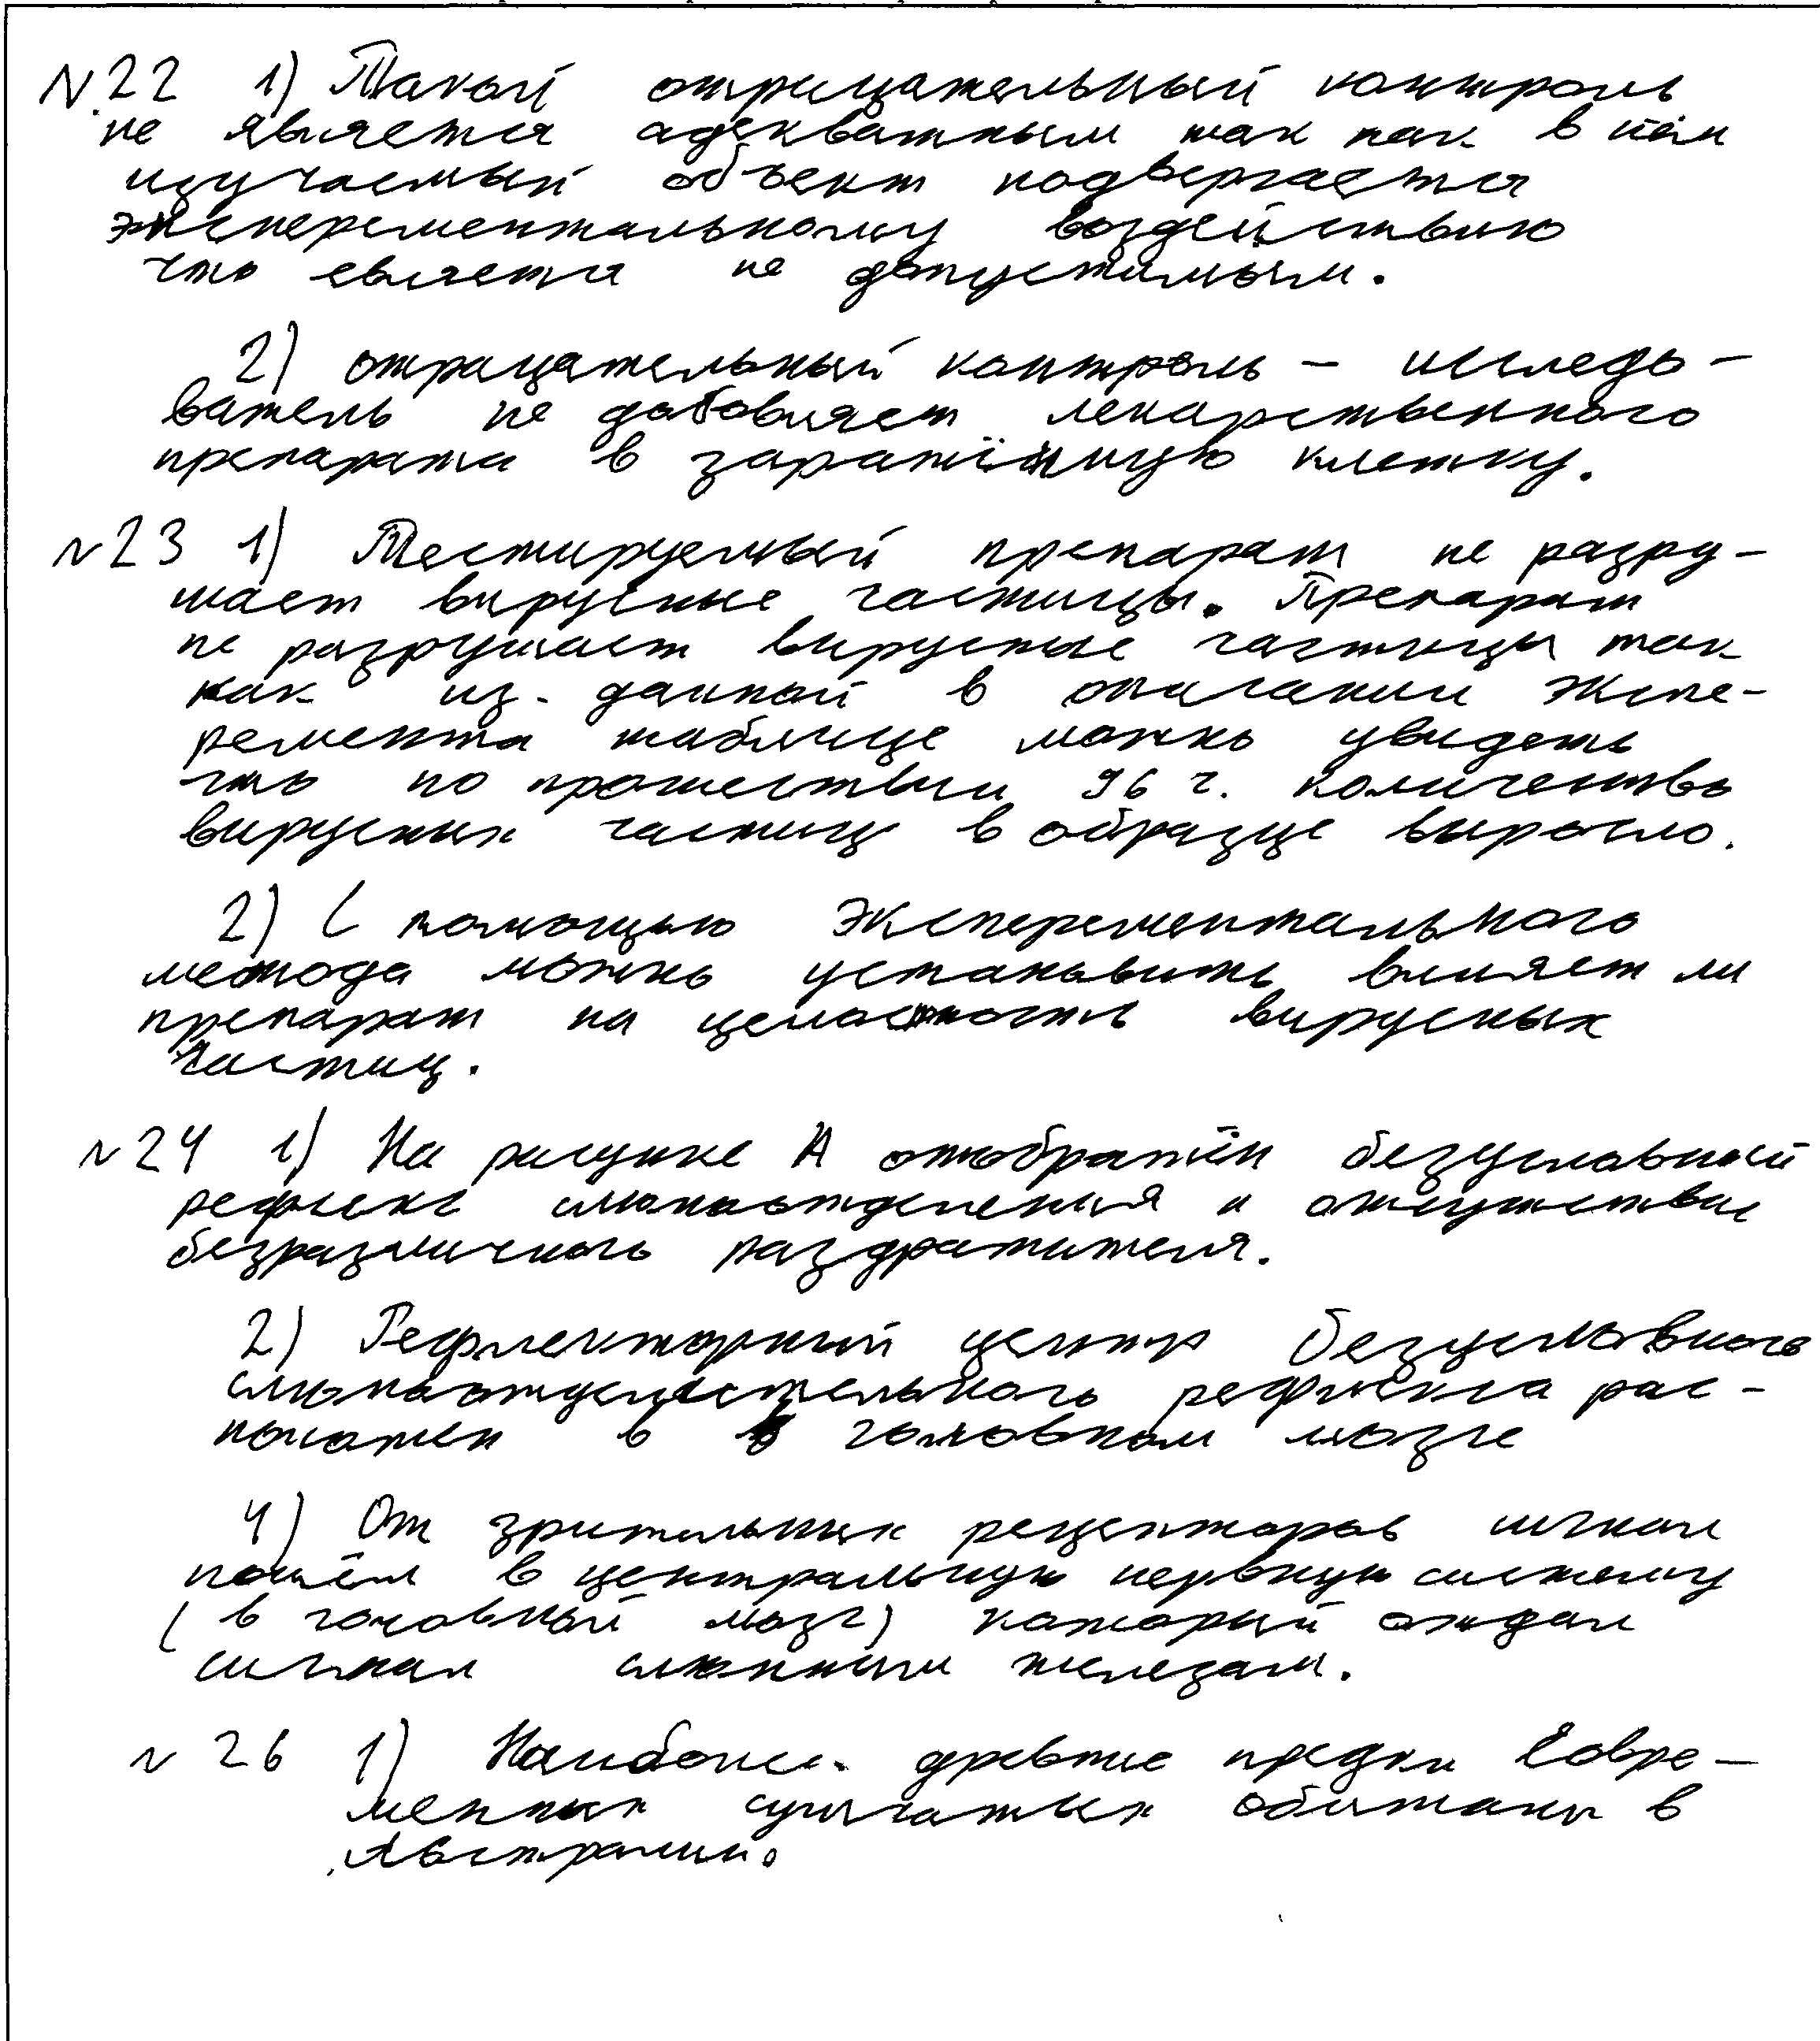 N.22 1) Такой отрицательный контроль
не является адекватным так как в нём
изучаемый объект подвергается
эксперементальному воздействию
что евляется не допустимым.
2) отрацательный контроль – исследо-
ватель не добовляет лекарственного
препарата в заражённую клетку.
N23 1) Тестируемый препарат не разру-
шает вирусные частицы. Препарат
не разрушает вирусные частицы так
как из данной в описании экспе-
ремента таблице можно увидеть
что по прошествии 96 ч. количество
вирусных частиц в образце выросло.
2) С помощью эксперементального
метода можно установить влияет ли
препарат на целостность вирусных
частиц.
N24 1) На рисунке А отображён безусловный
рефлекс слюноотделения и отсутствие
безразличного раздражителя.
2) Рефлекторный центр безусловного
рефлекса рас-
положен в головном мозге
4) От зрительных рецепторов сигнал
пошёл в центральную нервную систему
(в головной мозг) который отдал
сигнал слюнным железам.
N 26 1) Наиболее древние предки совре-
менных сумчатых обитали в
Австралии.